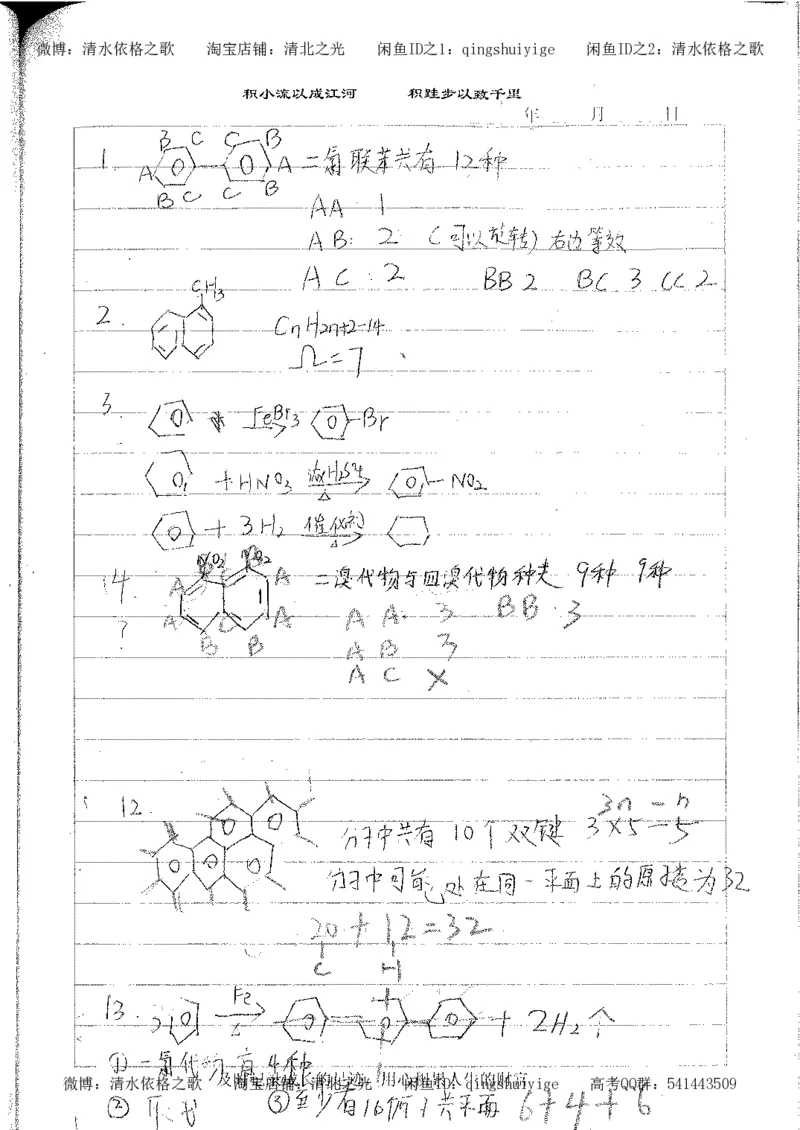 微博：清水依格之歌 淘宝店铺：清北之光 闲鱼ID之1：qingshuiyige 闲鱼ID之2：清水依格之歌
积小流以成江河 积跬步以致千里
年 月 日
1. A B C B C C B A C B 二氯联苯共有 12种
AA 1
AB: 2 (可以旋转) 右边等效
AC: 2 BB 2 BC 3 CC 2
2. CH3 CnH2n+2-14
Ω=7
3. FeBr3 Br
+HNO3 浓H2SO4 △ NO2
+ 3H2 催化剂 △
14. NO2 NO2 二溴代物与四溴代物种类 9种 9种
? A A A A B B C AA. 3 BB. 3
AB 3
AC ×
12. 分子中共有 10个双键 3×5-5 3n-n
分子中可能处在同一平面上的原子为32
20+12=32
C H
13. Fe △ + 2H2↑
① 二氯代物有4种
微博：清水依格之歌 淘宝店铺：清北之光 闲鱼ID：qingshuiyige 高考QQ群：541443509
② ③至少有16个 共平面 6+4+6